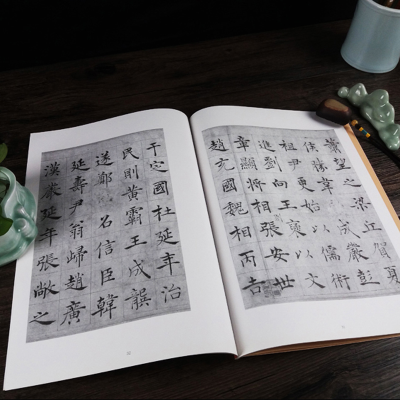 蕭望之梁江賀夏
侯勝韋成嚴彭
祖尹更始以儒術
進劉向王襃以文
章顯將相張安世
趙充國魏相丙吉
于定國杜延年治
民則黃霸王成龔
遂鄭召信臣韓
延壽尹翁歸趙廣
漢嚴延年張敞之